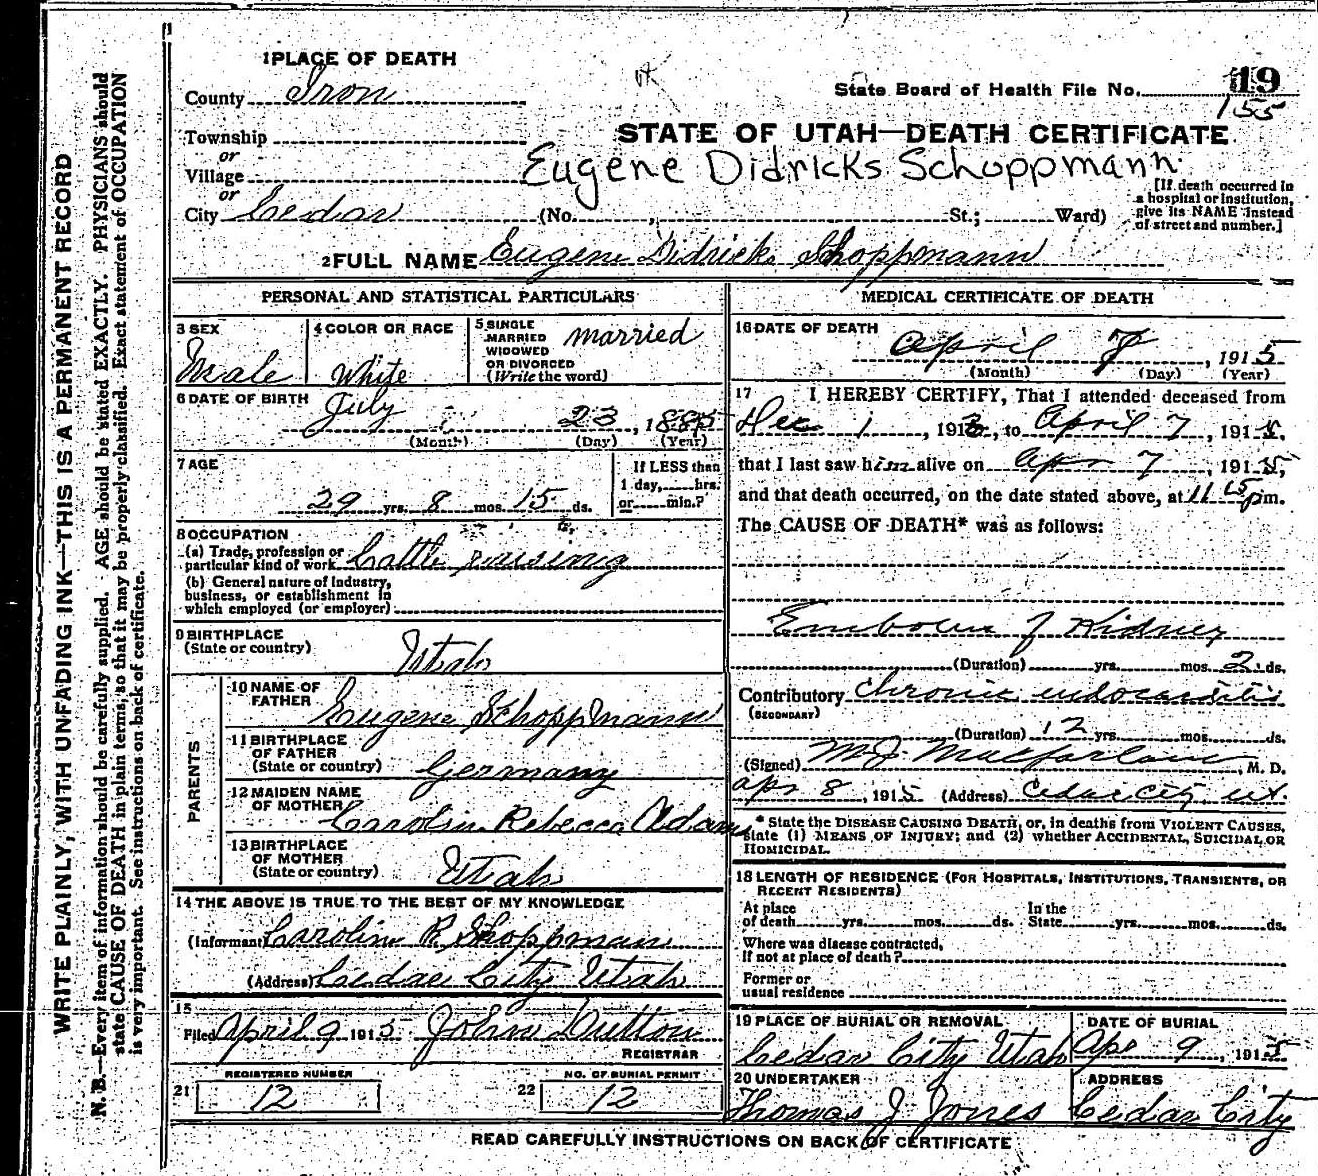 WRITE PLAINLY, WITH UNFADING INK—THIS IS A PERMANENT RECORD
N. B.—Every item of information should be carefully supplied. AGE should be stated EXACTLY. PHYSICIANS should
state CAUSE OF DEATH in plain terms, so that it may be properly classified. Exact statement of OCCUPATION
is very important. See instructions on back of certificate.
1 PLACE OF DEATH
County Iron
State Board of Health File No. 19
155
Township
or
Village
or
STATE OF UTAH—DEATH CERTIFICATE
Eugene Didricks Schoppmann
City Cedar (No. , St.; Ward)
[If death occurred in
a hospital or institution,
give its NAME instead
of street and number.]
2 FULL NAME Eugene Didricks Schoppmann
PERSONAL AND STATISTICAL PARTICULARS
3 SEX
Male
4 COLOR OR RACE
White
5 SINGLE
MARRIED
WIDOWED
OR DIVORCED
(Write the word)
married
6 DATE OF BIRTH
July 23, 1885
(Month) (Day) (Year)
7 AGE
29 yrs. 8 mos. 15 ds.
If LESS than
1 day, hrs.
or min.?
8 OCCUPATION
(a) Trade, profession or
particular kind of work Cattle raising
(b) General nature of Industry,
business, or establishment in
which employed (or employer)
9 BIRTHPLACE
(State or country)
Utah
PARENTS
10 NAME OF
FATHER
Eugene Schoppmann
11 BIRTHPLACE
OF FATHER
(State or country) Germany
12 MAIDEN NAME
OF MOTHER
Carolin Rebecca Adams
13 BIRTHPLACE
OF MOTHER
(State or country) Utah
14 THE ABOVE IS TRUE TO THE BEST OF MY KNOWLEDGE
(Informant) Carolin R. Shoppman
(Address) Cedar City Utah
15
Filed April 9 1915 John
REGISTRAR
REGISTERED NUMBER
21 12
NO. OF BURIAL PERMIT
22 12
MEDICAL CERTIFICATE OF DEATH
16 DATE OF DEATH
April 7, 1915
(Month) (Day) (Year)
17 I HEREBY CERTIFY, That I attended deceased from
Dec 1, 191 , to April 7, 1915,
that I last saw him alive on Apr 7, 1915,
and that death occurred, on the date stated above, at 11 15 p m.
The CAUSE OF DEATH* was as follows:
Kidney
(Duration) yrs. mos. 2 ds.
Contributory Chronic endocarditis
(SECONDARY)
(Duration) 12 yrs. mos. ds.
(Signed) M.J. Macfarlane, M. D.
Apr 8, 1915 (Address) Cedar City Ut.
* State the DISEASE CAUSING DEATH, or, in deaths from VIOLENT CAUSES,
state (1) MEANS OF INJURY; and (2) whether ACCIDENTAL, SUICIDAL OR
HOMICIDAL.
18 LENGTH OF RESIDENCE (FOR HOSPITALS, INSTITUTIONS, TRANSIENTS, OR
RECENT RESIDENTS)
At place
of death yrs. mos. ds.
In the
State yrs. mos. ds.
Where was disease contracted,
If not at place of death?
Former or
usual residence
19 PLACE OF BURIAL OR REMOVAL
Cedar City Utah
DATE OF BURIAL
Apr 9, 1915
20 UNDERTAKER
Thomas J. Jones
ADDRESS
Cedar City
READ CAREFULLY INSTRUCTIONS ON BACK OF CERTIFICATE